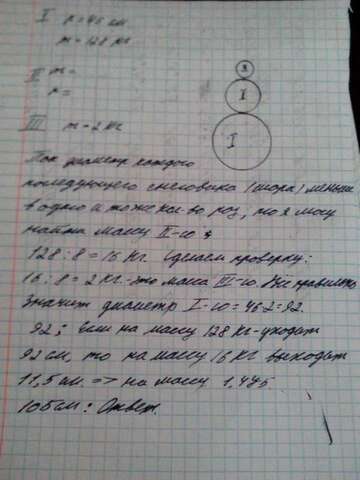 I r = 46 см
m = 128 кг
II m =
r =
III m = 2 кг
3
I
I
Так диаметр каждого
последующего снеговика (шара) меньше
в одно и тоже кол-во раз, то я могу
найти массу II-го
128 : 8 = 16 кг. Сделаем проверку:
16 : 8 = 2 кг. - это масса III-го. Все правильно
значит диаметр I-го = 46·2 = 92.
92; Если на массу 128 кг уходит
92 см, то на массу 16 кг выходит
11,5 см. => на массу 1,4375.
105 см : Ответ.